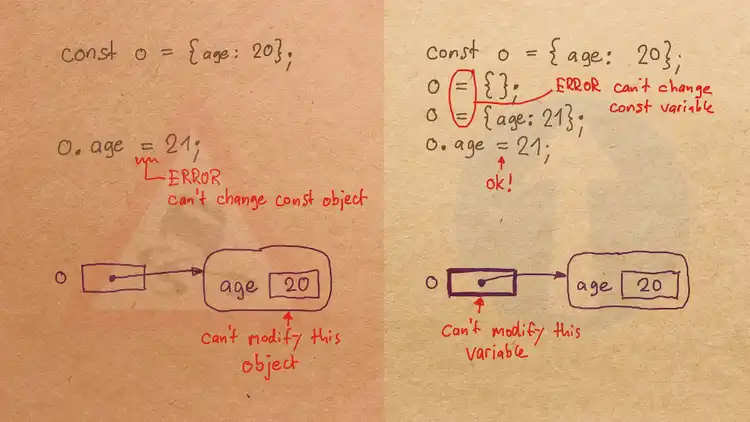 const o = {age: 20};
o.age = 21;
ERROR
can't change const object
o
age 20
can't modify this
object
const o = {age: 20};
o = {};
ERROR can't change
const variable
o = {age: 21};
o.age = 21;
ok!
o
age 20
can't modify this
variable